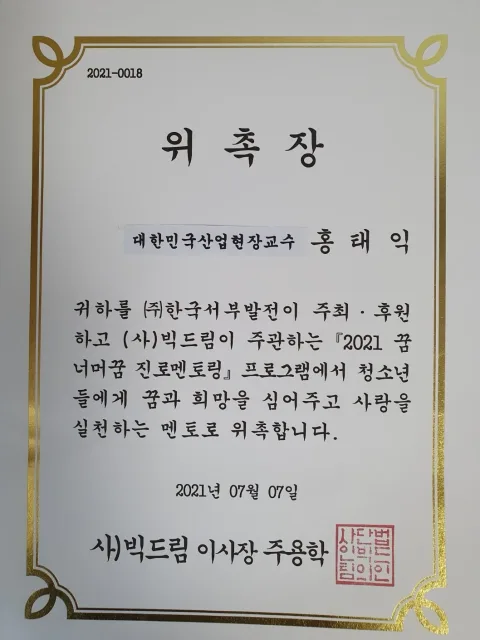 2021-0018
위 촉 장
대한민국산업현장교수 홍 태 익
귀하를 ㈜한국서부발전이 주최 · 후원
하고 (사)빅드림이 주관하는 『2021 꿈
너머꿈 진로멘토링』 프로그램에서 청소년
들에게 꿈과 희망을 심어주고 사랑을
실천하는 멘토로 위촉합니다.
2021년 07월 07일
사)빅드림 이사장 주용학